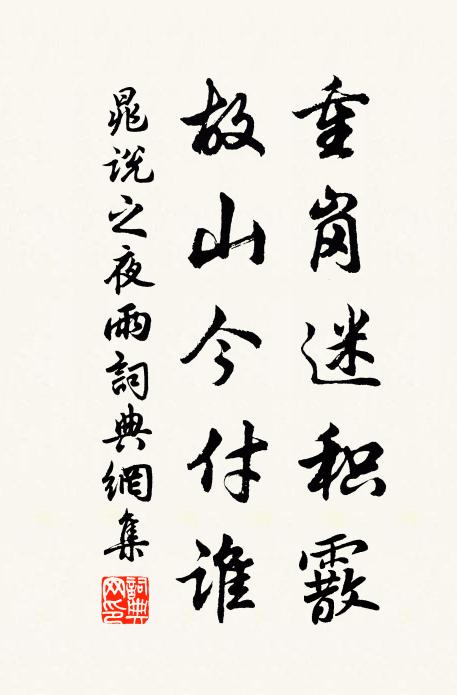 重岗迷积霰
故山今付谁
晁说之夜雨詞典網集
詞典网印